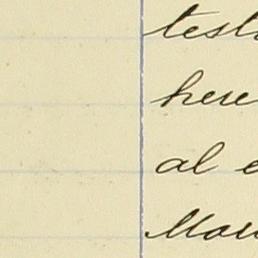 test
here
al e
Mou